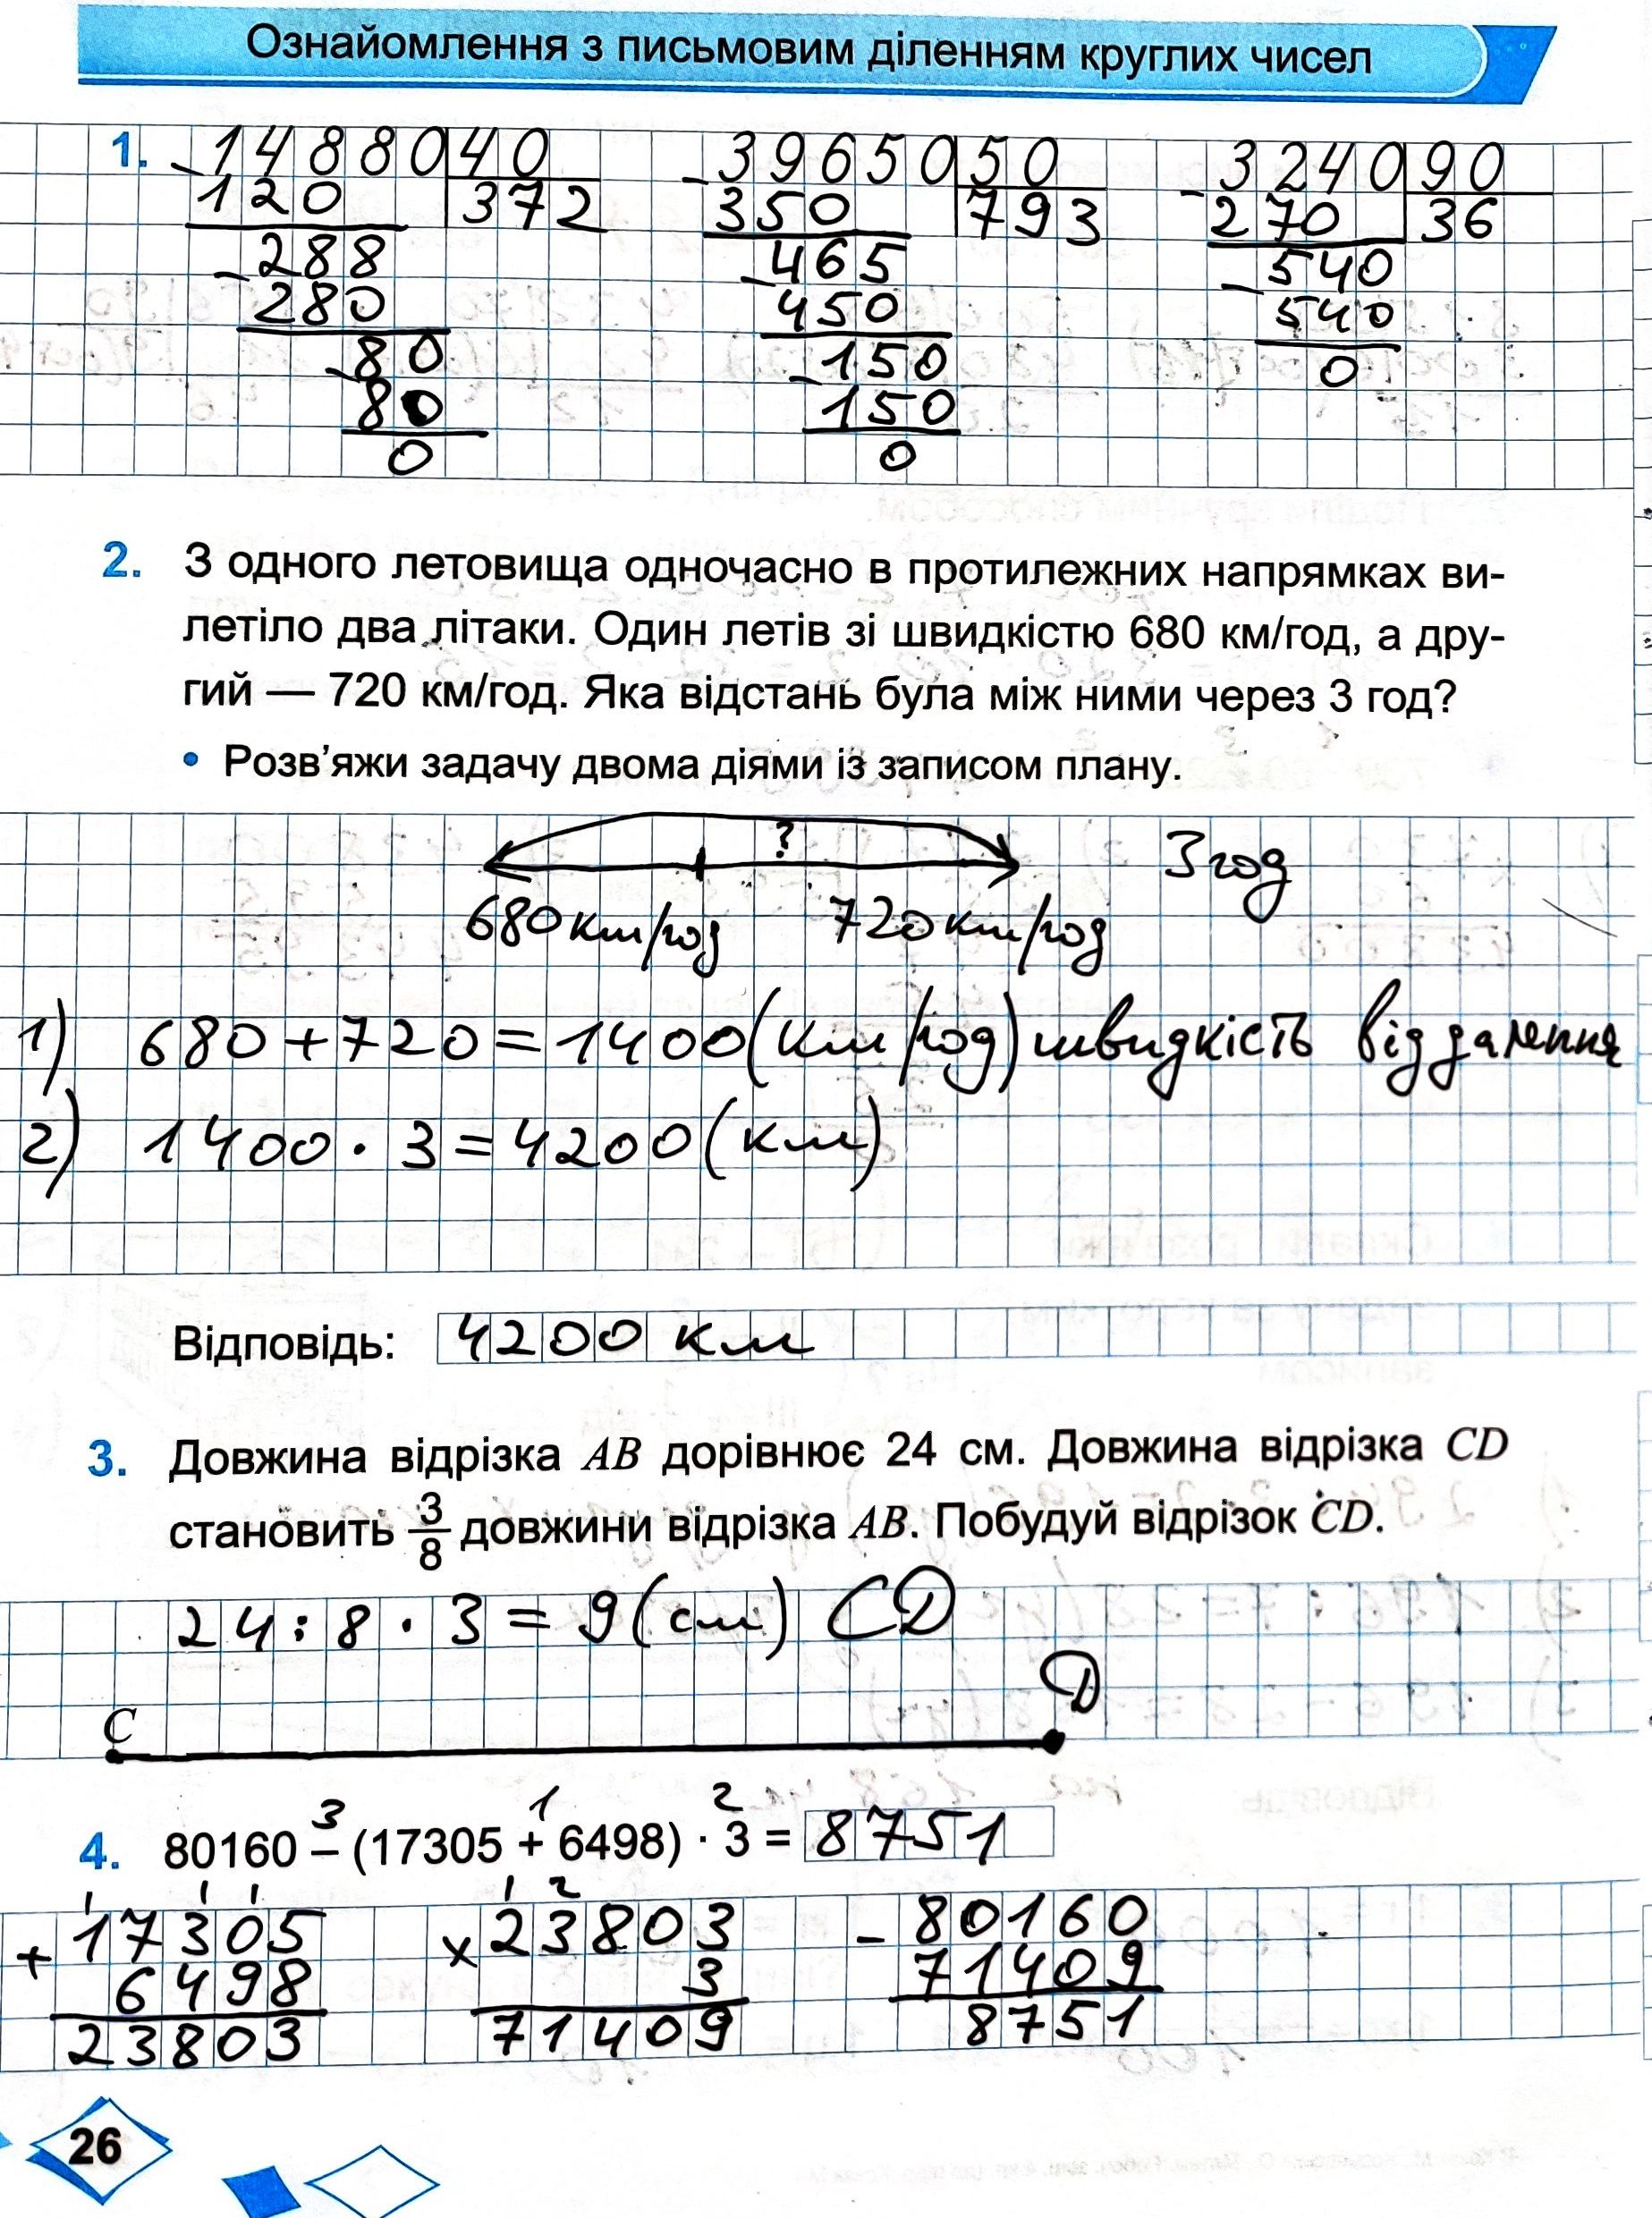 Ознайомлення з письмовим діленням круглих чисел
1. -14880|40 -39650|50 -3240|90
120 372 350 793 270 36
-288 -465 -540
280 450 540
-80 -150 0
80 150
0 0
2. З одного летовища одночасно в протилежних напрямках ви-
летіло два літаки. Один летів зі швидкістю 680 км/год, а дру-
гий — 720 км/год. Яка відстань була між ними через 3 год?
• Розв'яжи задачу двома діями із записом плану.
? 3 год
680 км/год 720 км/год
1) 680+720=1400(км/год) швидкість віддалення
2) 1400·3=4200(км)
Відповідь: 4200 км
3. Довжина відрізка AB дорівнює 24 см. Довжина відрізка CD
становить 3/8 довжини відрізка AB. Побудуй відрізок CD.
24:8·3=9(см) CD
C D
3 1 2
4. 80160 – (17305 + 6498) · 3 = 8751
1 1 1 1 2
+17305 ×23803 -80160
6498 3 71409
23803 71409 8751
26